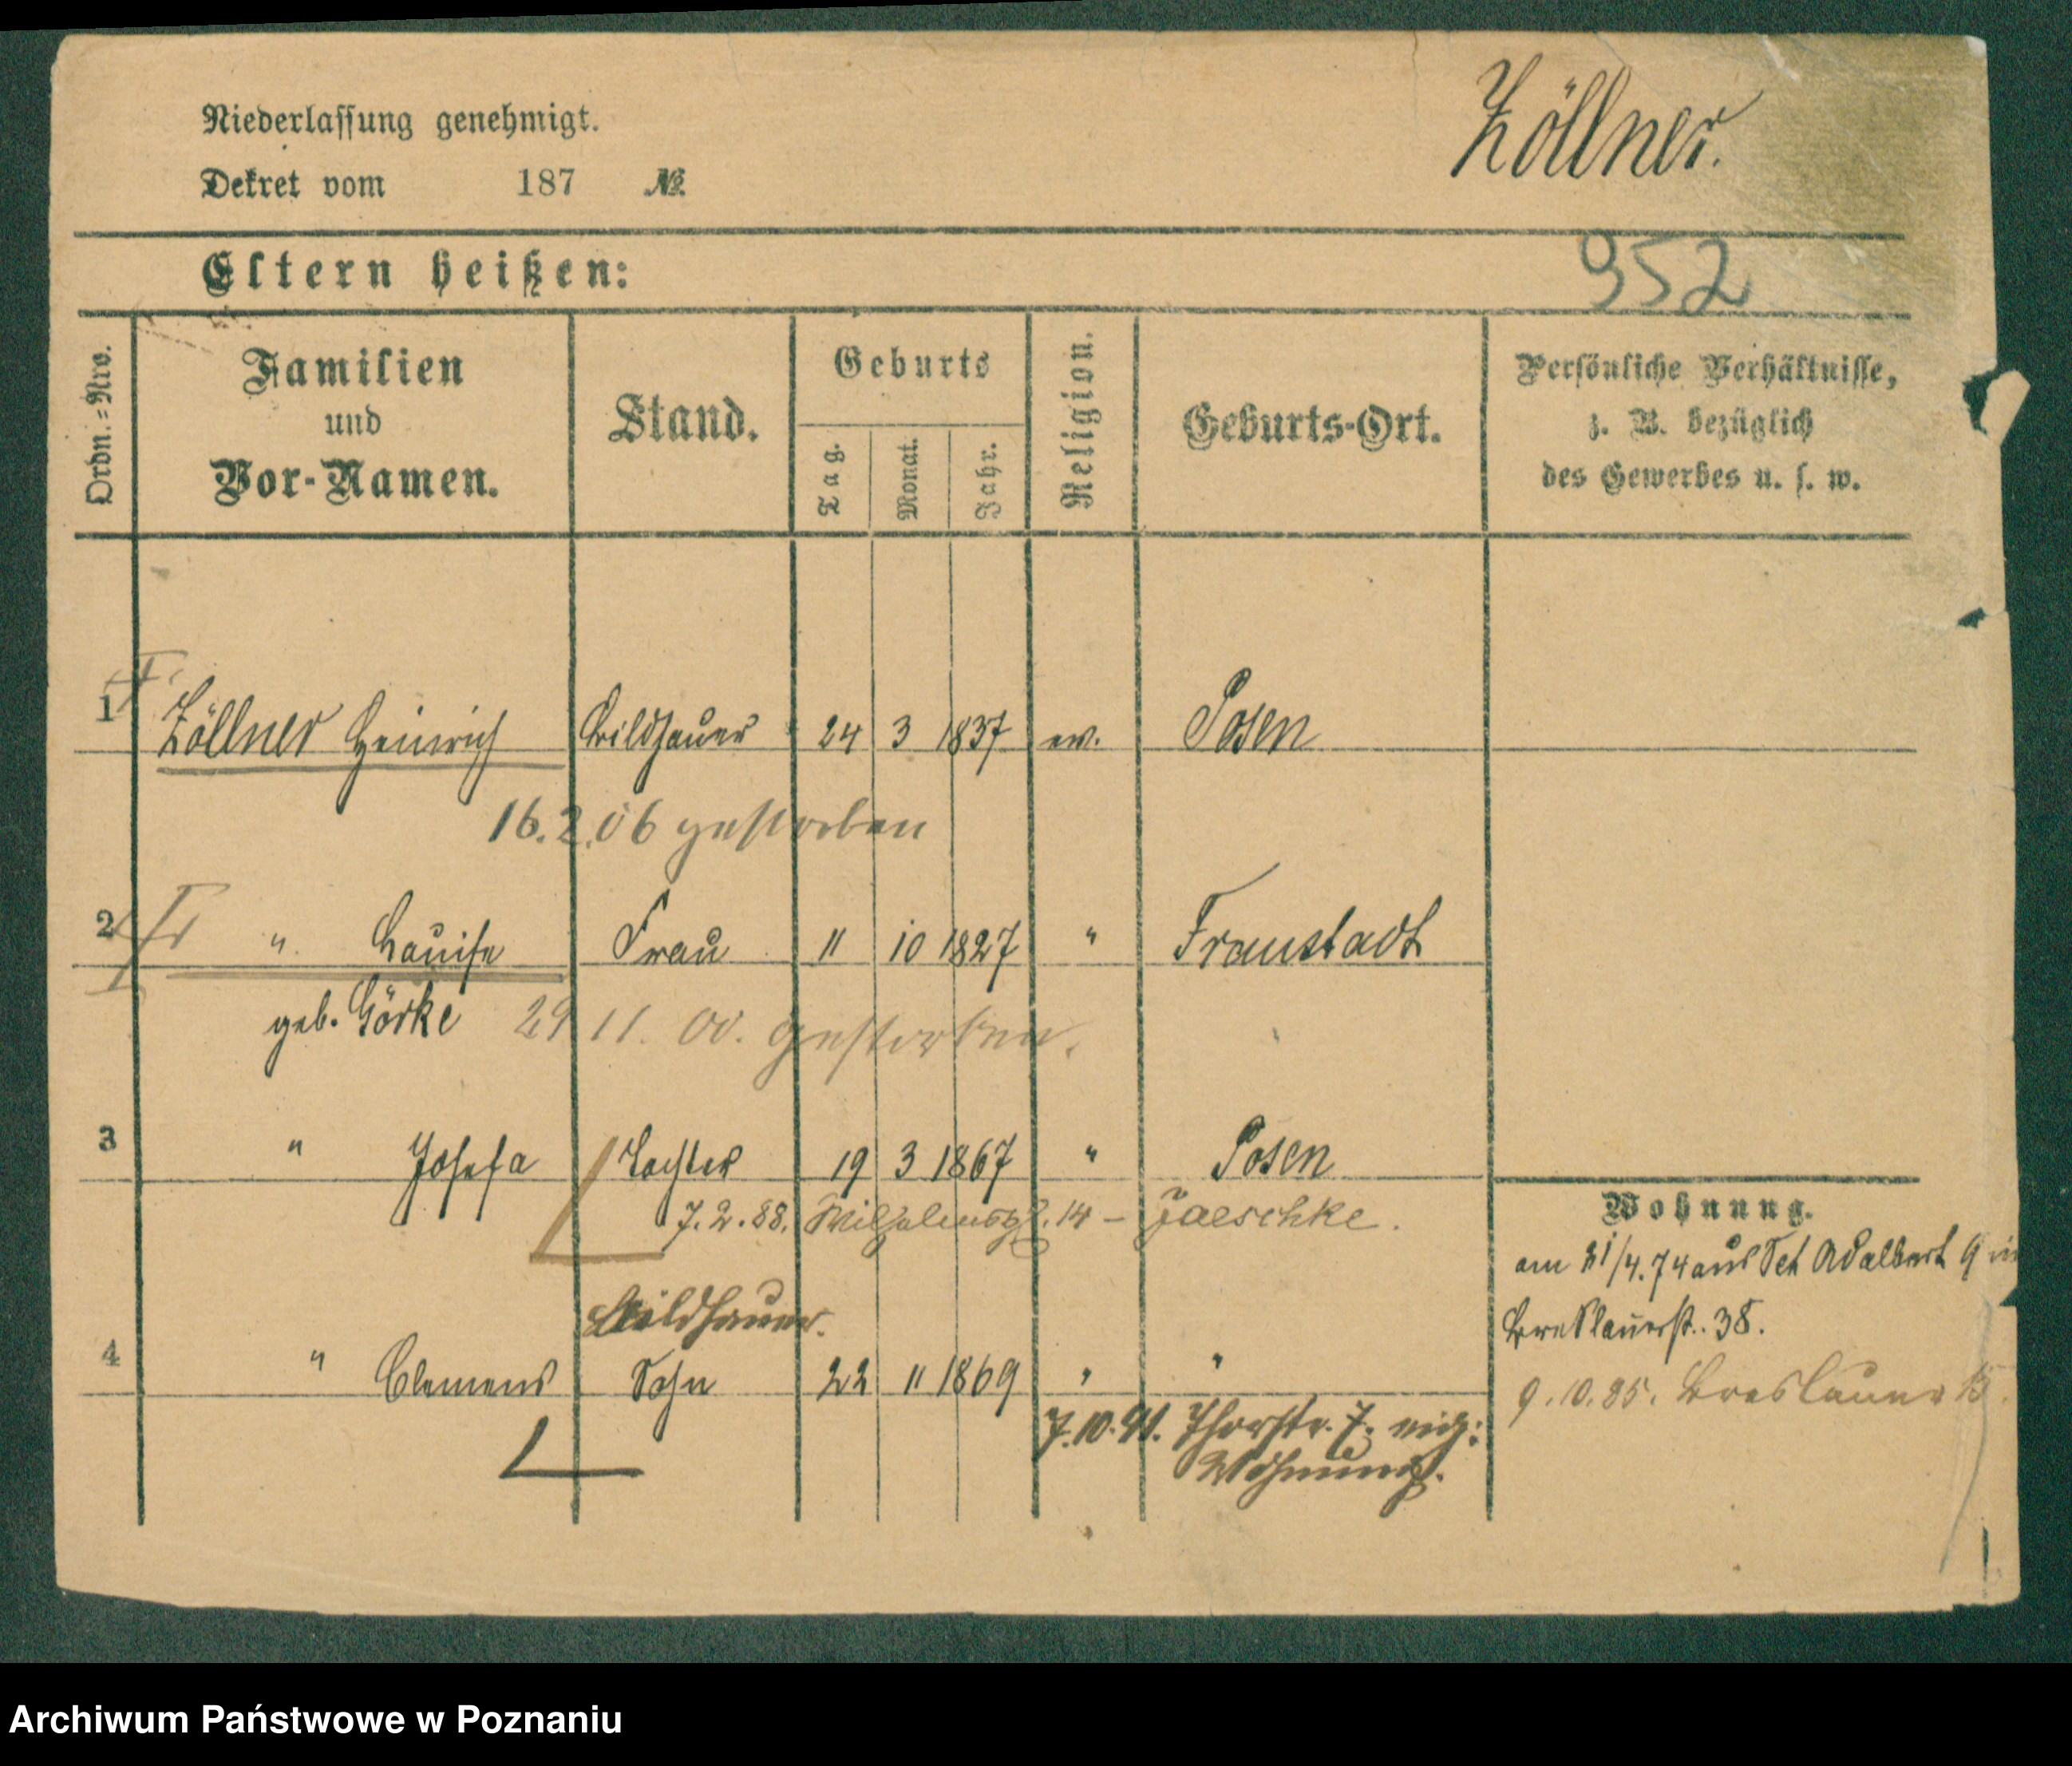 Niederlassung genehmigt.
Zöllner.
Dekret vom 187 №
Eltern heißen:
952
Ordn.=Nro.
Familien
und
Vor-Namen.
Stand.
Geburts
Tag.
Monat.
Jahr.
Religion.
Geburts-Ort.
Persönliche Verhältnisse,
z. B. bezüglich
des Gewerbes u. s. w.
1 Zöllner Heinrich Bildhauer 24 3 1837 ev. Posen
16.2.06 gestorben
2 " Louise Frau 11 10 1827 " Fraustadt
geb. Görke 29 11. 00. gestorben.
3 " Josefa Tochter 19 3 1867 " Posen
7.2.88. Wilhelmspl. 14 – Jaeschke.
Wohnung.
am 21/4.74 aus Sct Adalbert 9 in
Breslauerst. 38.
9.10.85. Breslauer 15.
Bildhauer.
4 " Clemens Sohn 22 11 1869 " "
7.10.91. Thorstr. 7. eig:
Wohnung.
Archiwum Państwowe w Poznaniu